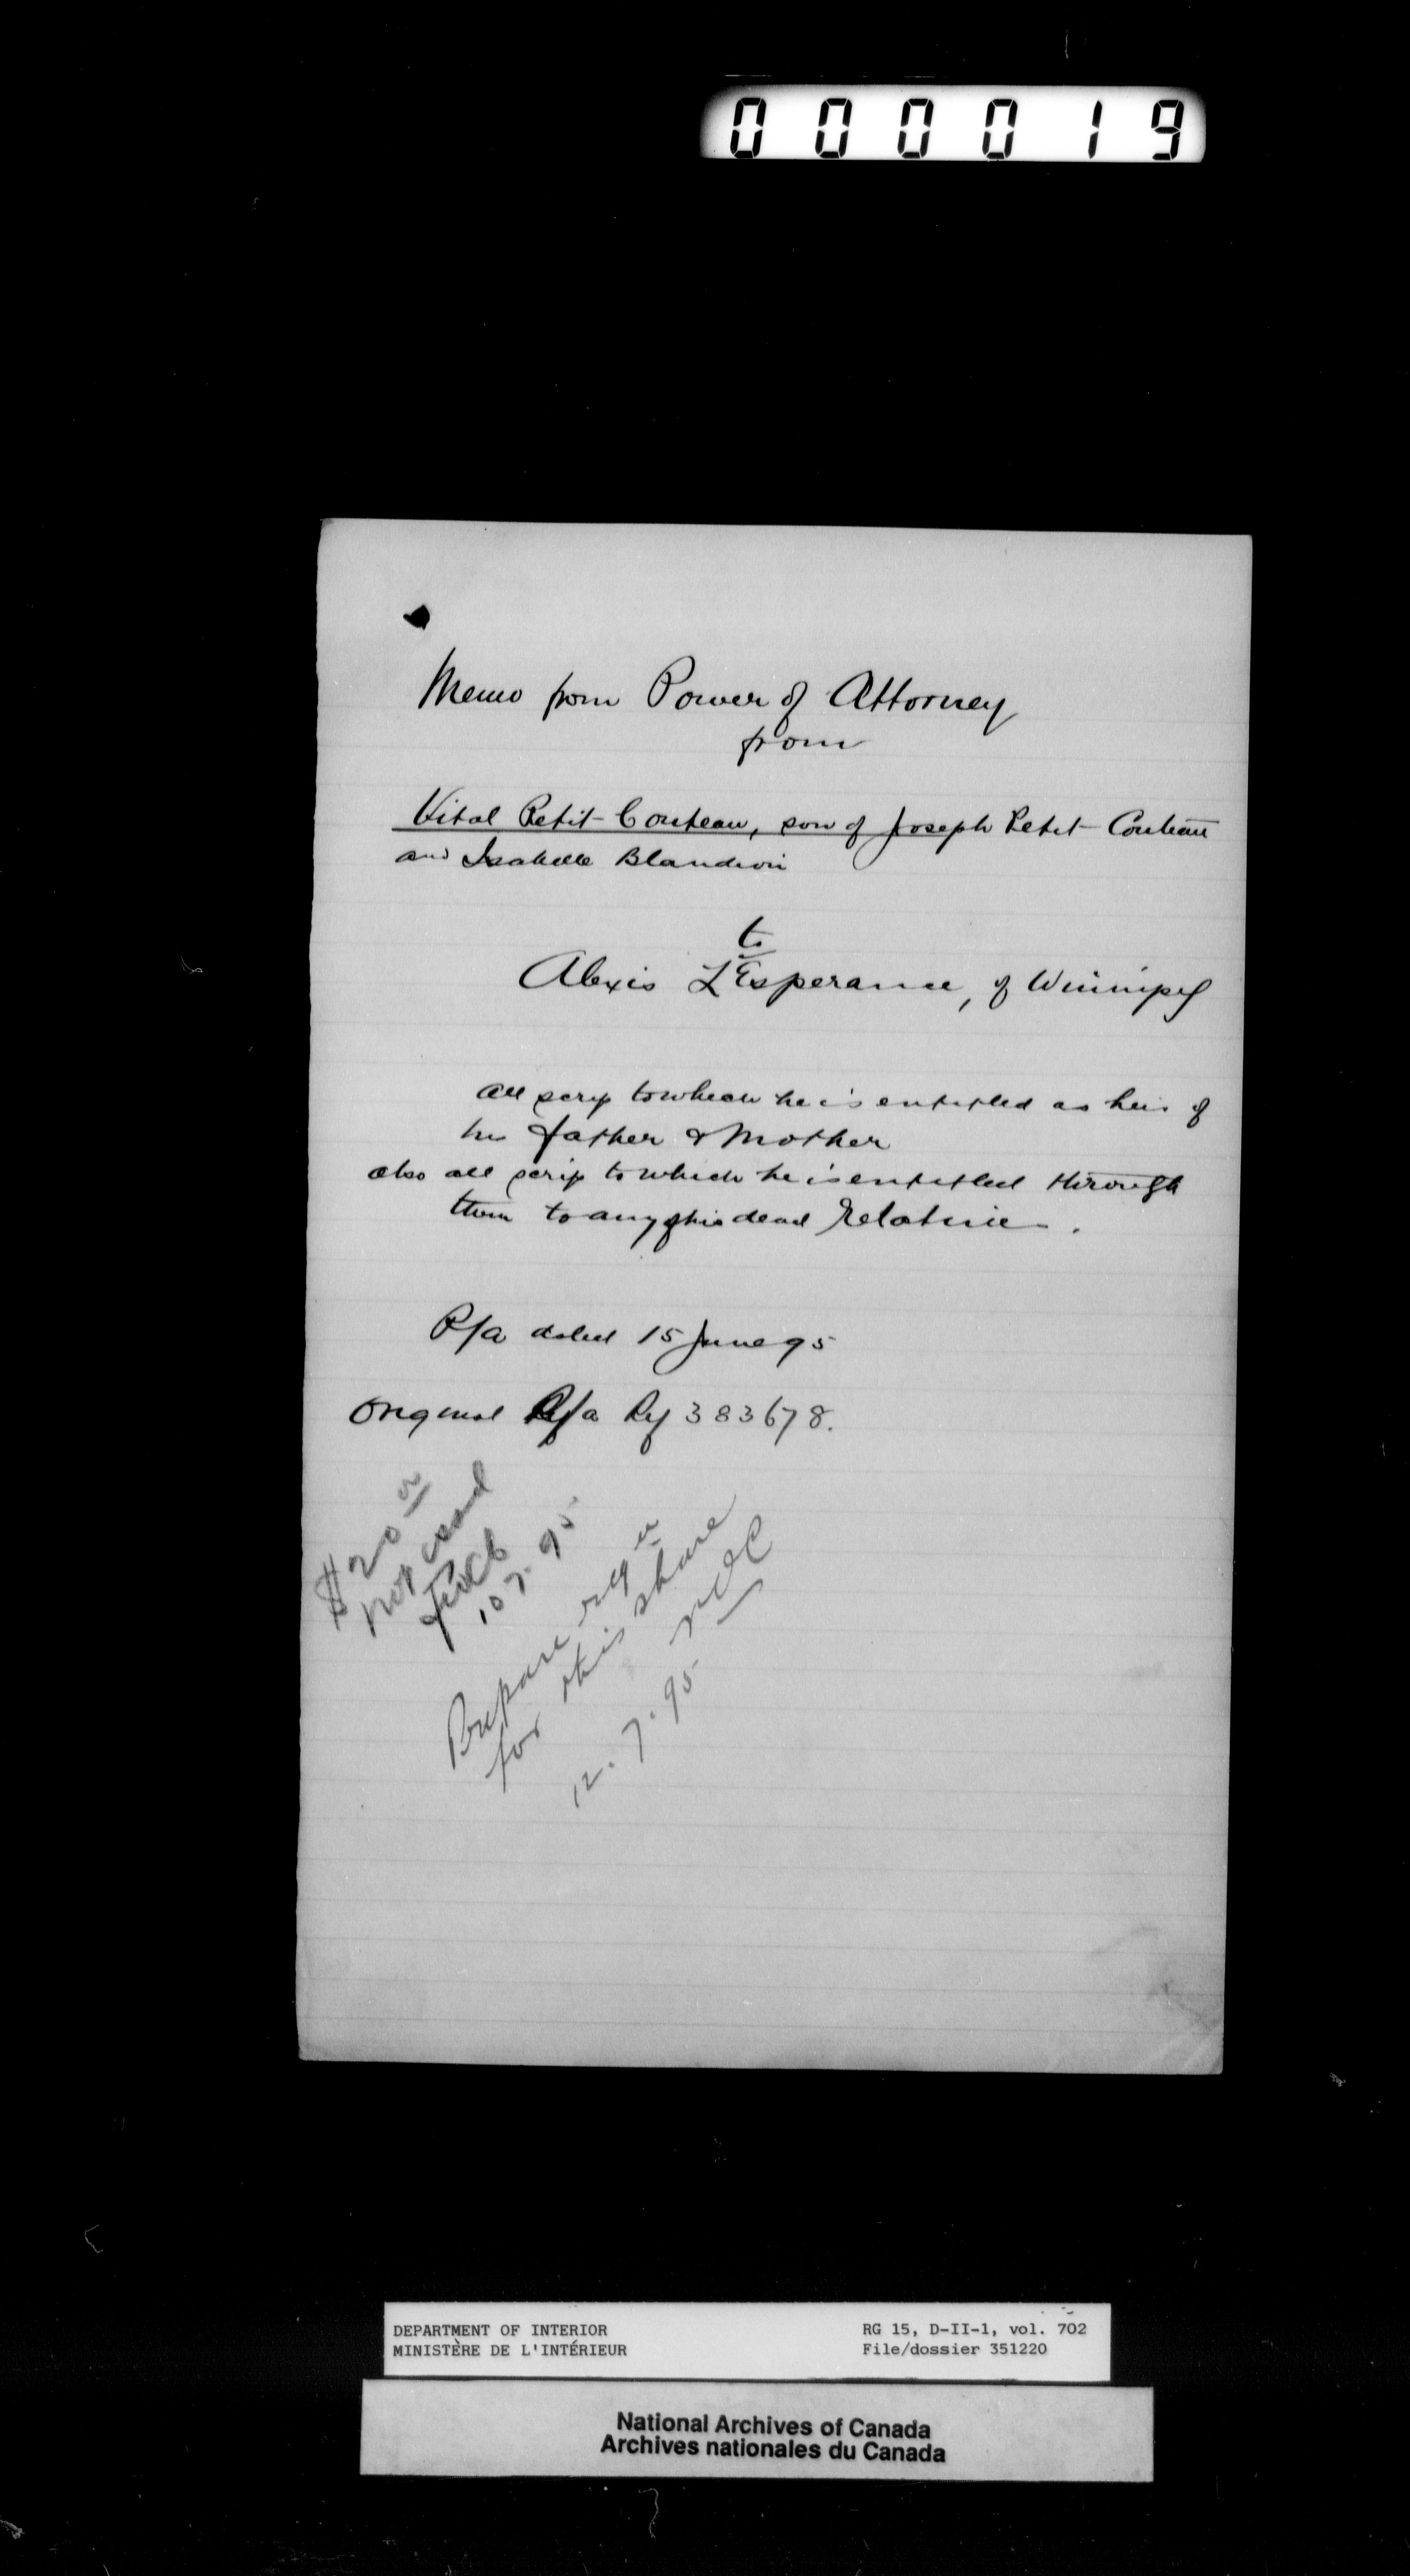 000019
Memo from Power of Attorney
from
Vital Petit-Couteau, son of Joseph Petit-Couteau
and Isabelle Blandion
to
Alexis L'Esperance, of Winnipeg
all scrip to which he is entitled as heir of
his father & mother
also all scrip to which he is entitled through
them to any of his dead relatives.
P/a dated 15 June 95
Original P/a Ry 383678.
$20
not used
10.7.95
Prepare reqn
for this share
12.7.95
DEPARTMENT OF INTERIOR
MINISTÈRE DE L'INTÉRIEUR
RG 15, D-II-1, vol. 702
File/dossier 351220
National Archives of Canada
Archives nationales du Canada